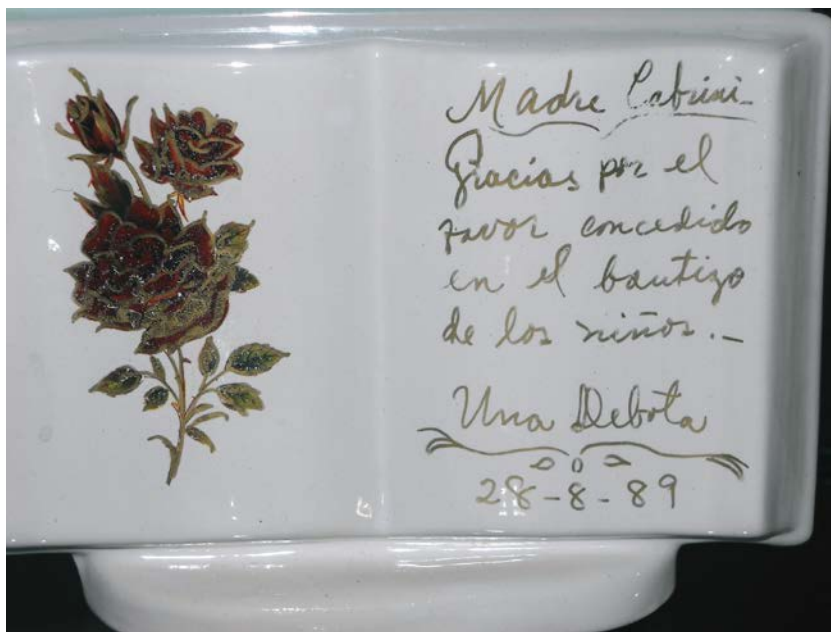 Madre Cabrini
Gracias por el
favor concedido
en el bautizo
de los niños.-
Una Debota
28-8-89